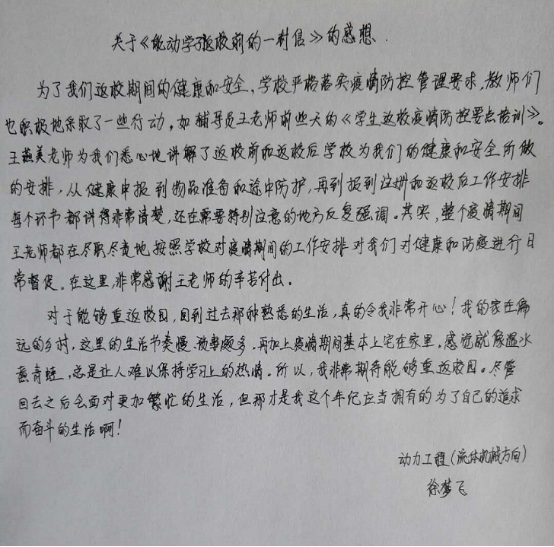 关于《能动学子返校前的一封信》的感想.
为了我们返校期间的健康和安全,学校严格落实疫情防控管理要求,教师们
也积极地采取了一些行动,如辅导员王老师前些天的《学生返校疫情防控要点培训》。
王燕美老师为我们悉心地讲解了返校前和返校后学校为我们的健康和安全所做
的安排,从健康申报到物品准备和途中防护,再到报到注册和返校后工作安排
每个环节都讲得非常清楚,还在需要特别注意的地方反复强调。其实,整个疫情期间
王老师都在尽职尽责地按照学校对疫情期间的工作安排对我们对健康和防疫进行日
常督促。在这里,非常感谢王老师的辛苦付出。
对于能够重返校园,回到过去那种熟悉的生活,真的令我非常开心!我的家在偏
远的乡村,这里的生活节奏慢、琐事颇多,再加上疫情期间基本上宅在家里,感觉就像温水
煮青蛙,总是让人难以保持学习上的热情。所以,我非常期待能够重返校园。尽管
回去之后会面对更加繁忙的生活,但那才是我这个年纪应当拥有的为了自己的追求
而奋斗的生活啊!
动力工程(流体机械方向)
徐梦飞